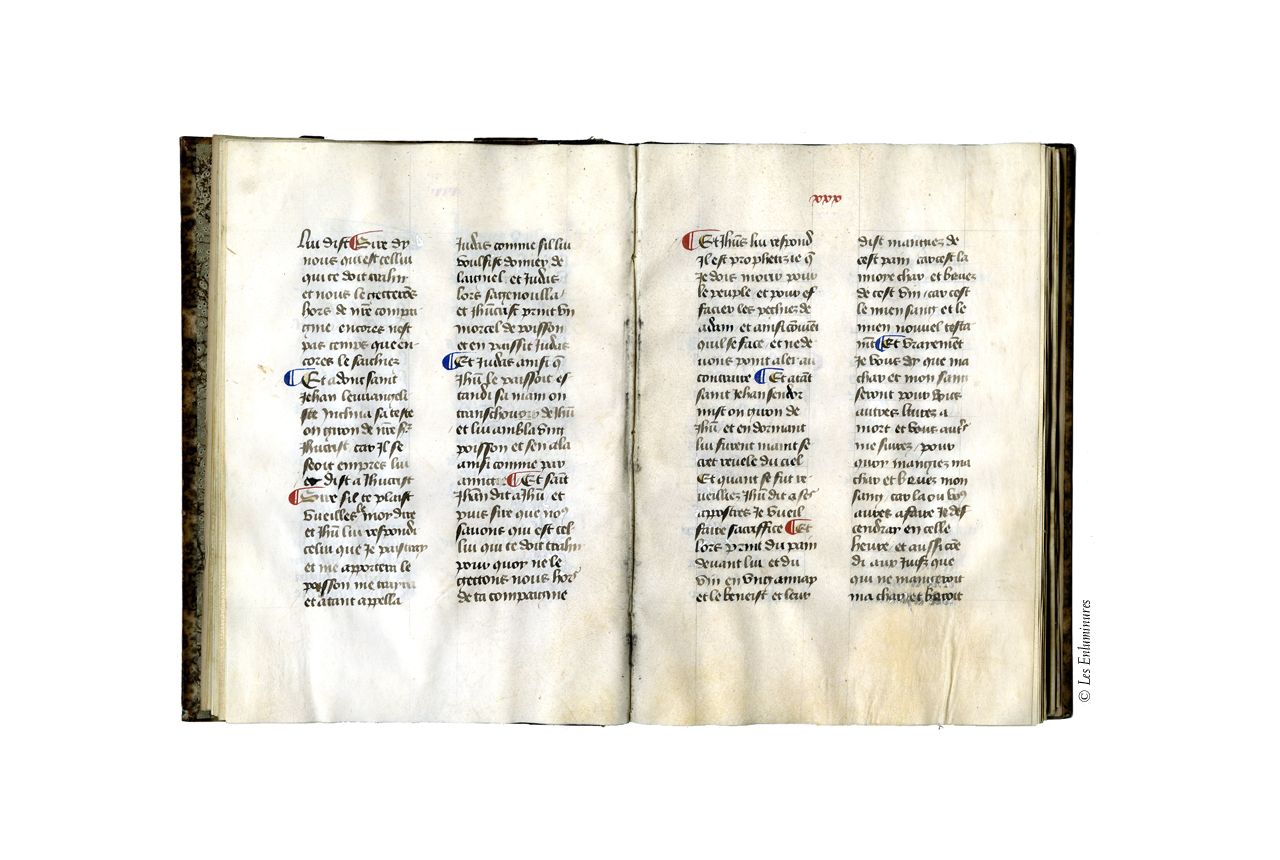 Lui dist Sire dy
nous qui est cellui
qui te doit trahir
et nous le getterōs
hors de nr̄e compai
gnie encores nest
pas temps que en
cores le sachiez
Et adont saint
Jehan leuuangeli
ste Inclina sa teste
on giron de nr̄e sr̄
Jhūcrist car Il se
seoit empres lui
et dist a Jhūcrist
Sire sil te plaist
Vueilles le moy dire
et Jhūs lui respondi
celui que Je paistray
et me apportera le
poisson me trayra
et atant appella
Judas comme sil lui
voulsist donner de
laignel et Judas
lors sagenoulla
et Jhūcrist print vn
morcel de poisson
et en paissit Judas
Et Judas ainsi q̄
Jhūs le paissoit es
tandi sa main on
tranchouer de Jhūs
et lui ambla vng
poisson et sen ala
ainsi comme par
Et saīt
Jhan dit a Jhūs et
puis sire que noꝰ
sauons qui est cel
lui qui te doit trahir
pour quoy ne le
gettons nous hors
de ta compaignie
xxx
Et Jhūs lui respond
Il est prophetizie q̄
Je dois morir pour
le peuple et pour ef
facier les pechiez de
adam et ainsi cōuiēt
quil se face et ne de
uons point aler au
contraire Et atāt
saint Jehan sendor
mist on giron de
Jhūs et en dormant
lui furent maint se
cret reuele du ciel
Et quant se fut re
ueilliez Jhūs dit a ses
appostres Je vueil
faire sacriffice Et
lors print du pain
deuant lui et du
vin en vng annap
et le beneist et leur
dist mangiez de
cest pain car cest la
moye char et beuez
de cest vin car cest
le mien sang et le
mien nouuel testa
mēt Et vrayemēt
Je vous dy que ma
char et mon sang
seront pour vous
autres liurez a
mort et vous autr̄s
me suirez pour
quoy mangiez ma
char et beuez mon
sang car la ou voꝰ
aurez a faire Je des
cendray en celle
heure et aussi cōe
di aux Juifz que
qui ne mangeroit
ma char et buroit
© Les Enluminures